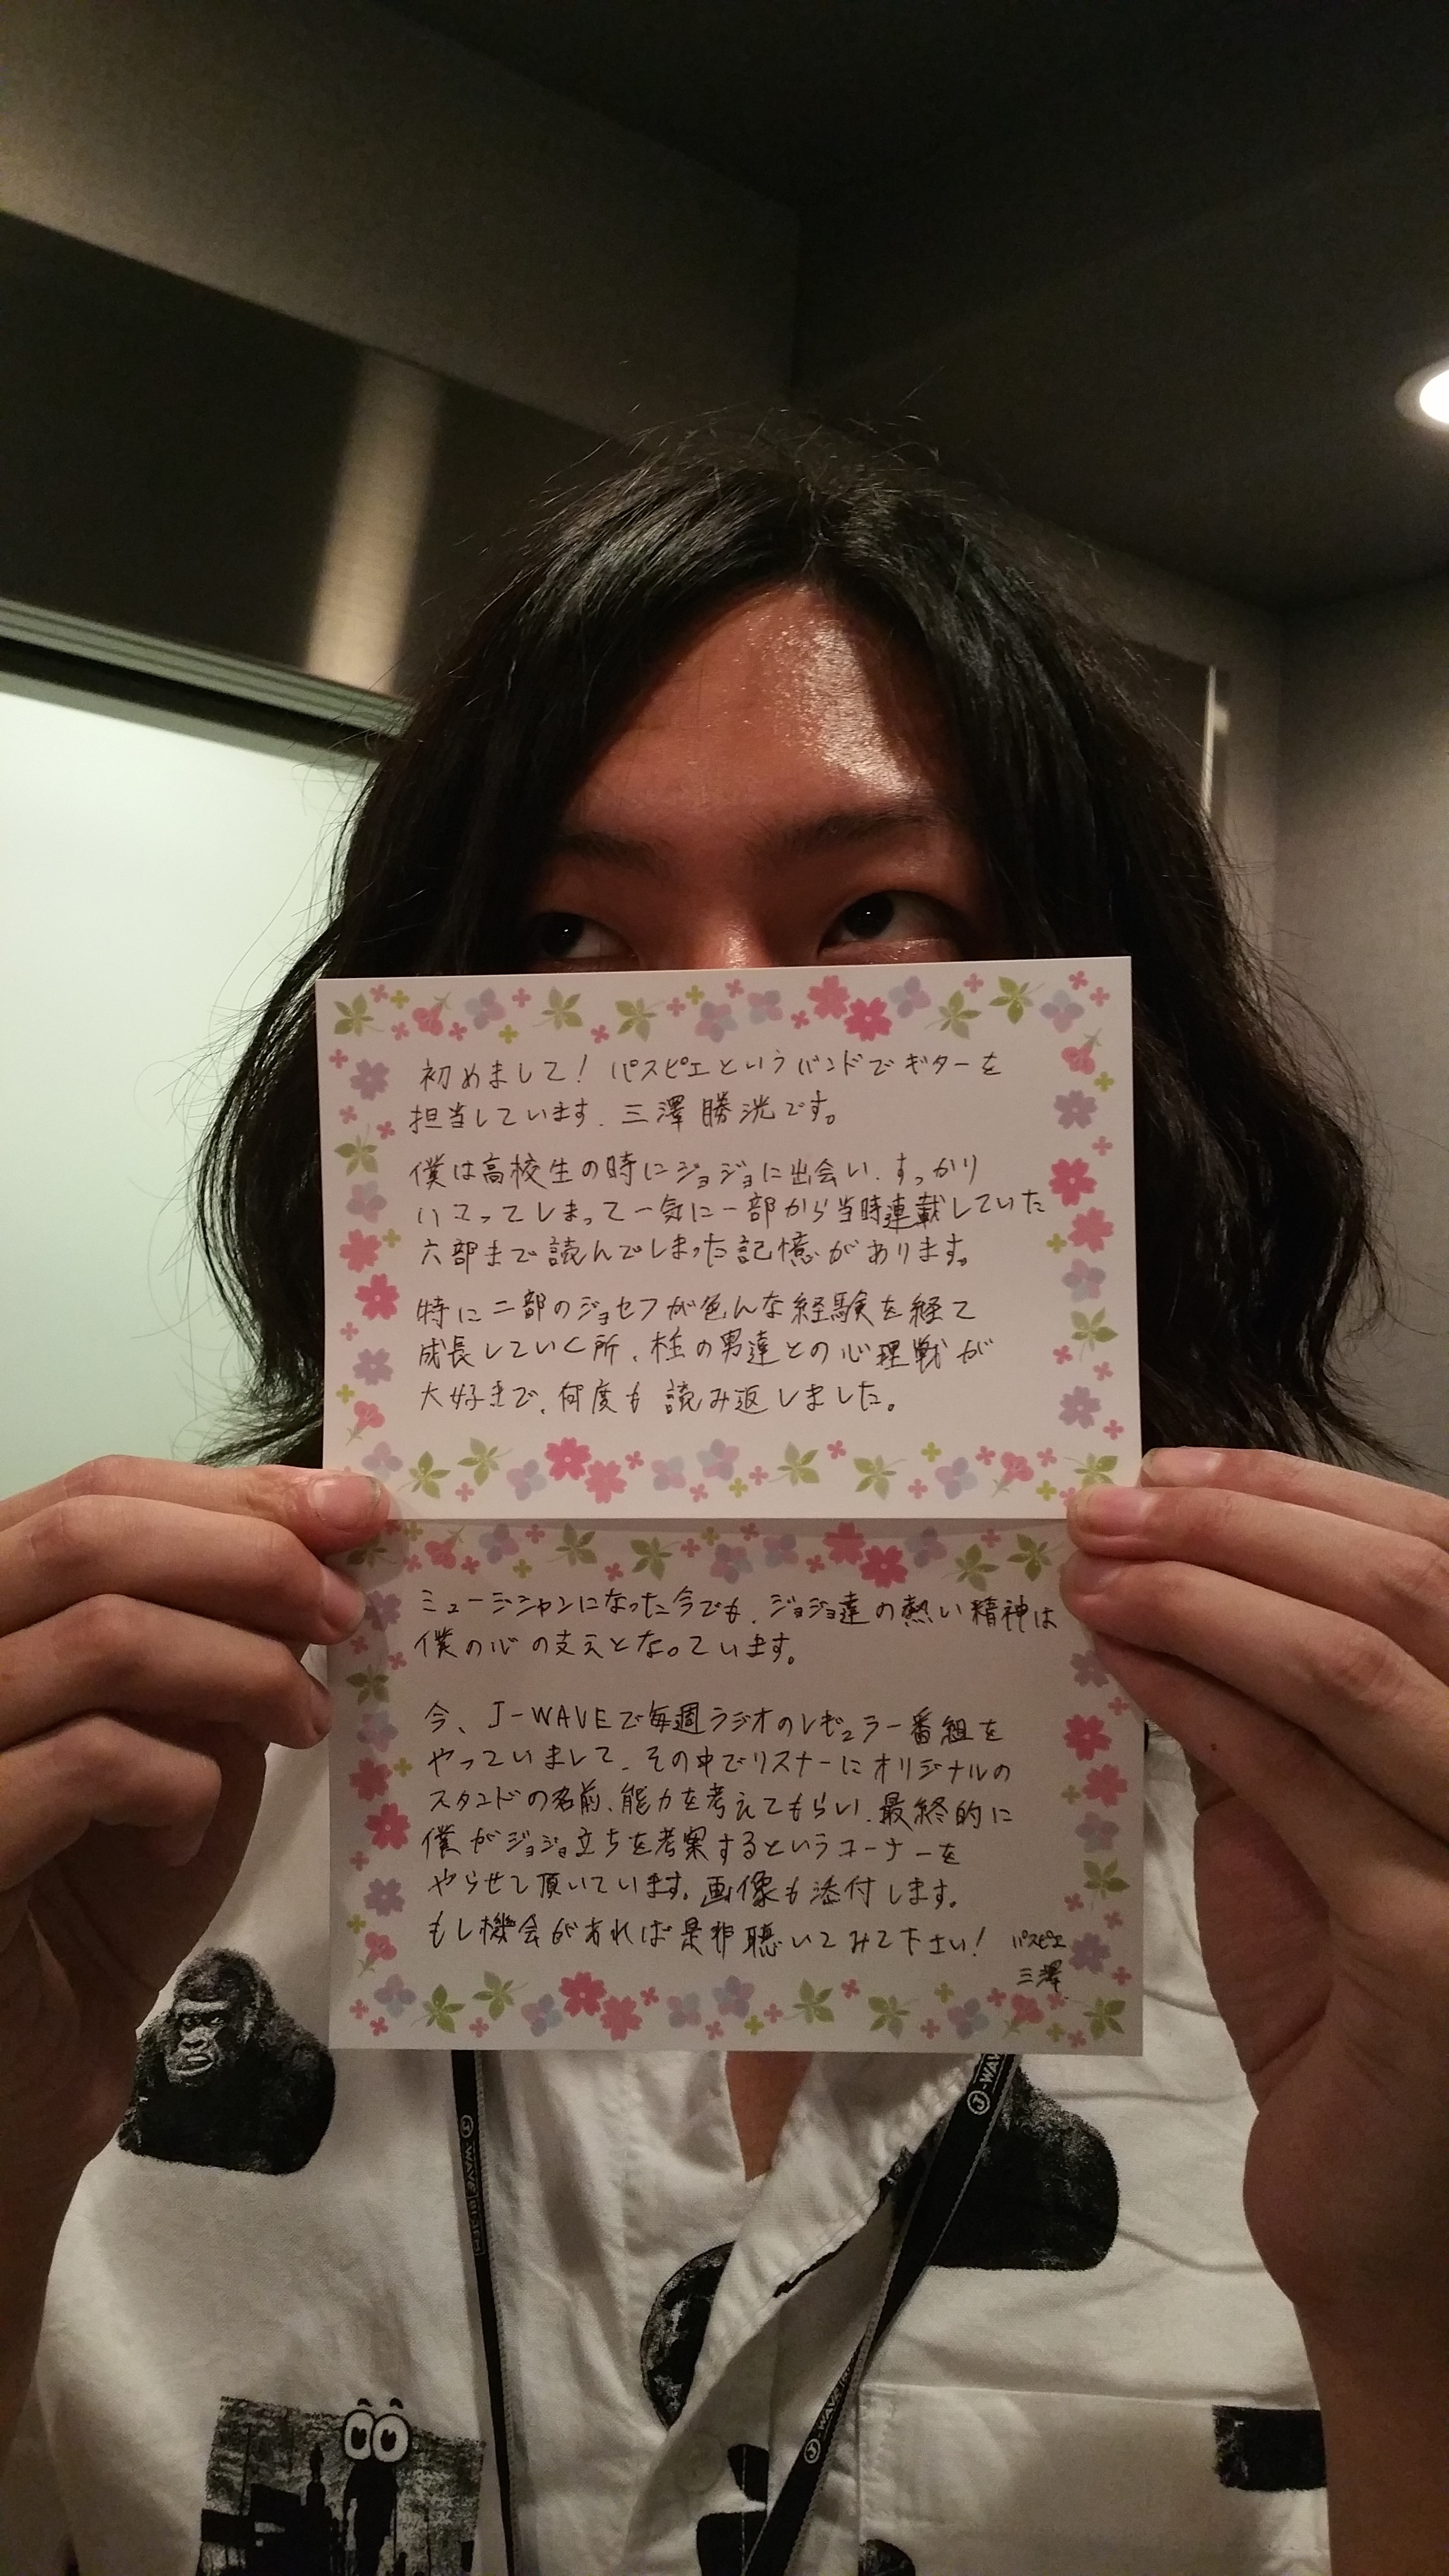 初めまして！パスピエというバンドでギターを
担当しています．三澤勝洸です。
僕は高校生の時にジョジョに出会い．すっかり
ハマってしまって一気に一部から当時連載していた
六部まで読んでしまった記憶があります。
特に二部のジョセフが色んな経験を経て
成長していく所、柱の男達との心理戦が
大好きで、何度も読み返しました。
ミュージシャンになった今でも、ジョジョ達の熱い精神は
僕の心の支えとなっています。
今、J-WAVEで毎週ラジオのレギュラー番組を
やっていまして、その中でリスナーにオリジナルの
スタンドの名前、能力を考えてもらい、最終的に
僕がジョジョ立ちを考案するというコーナーを
やらせて頂いています。画像も添付します。
もし機会があれば是非聴いてみて下さい！
パスピエ
三澤
J-WAVE
J-WAV
J-WAVE